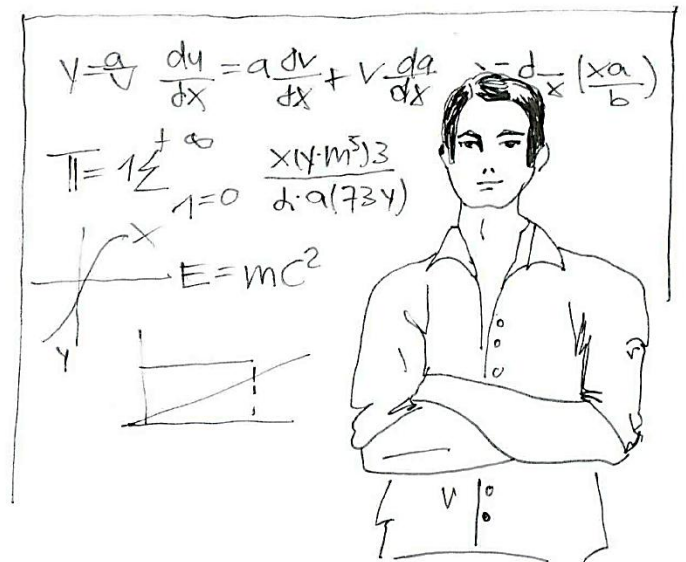 y = a/v du/dx = a dv/dx + v da/dx = d/x (xa/b)
π = 1Σ +∞ 1=0 x(y·m⁵)3 / d·a(73y)
X
E = mc²
Y